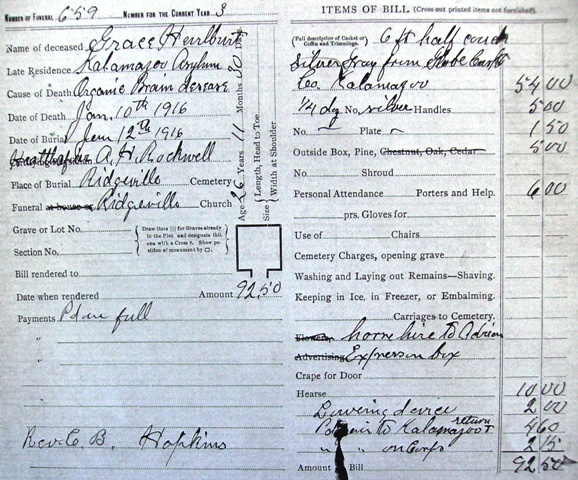 NUMBER OF FUNERAL 659 NUMBER FOR THE CURRENT YEAR 3
Name of deceased Grace Hurlburt
Late Residence Kalamazoo Asylum
Cause of Death Organic Brain disease
Date of Death Jan. 10th 1916
Date of Burial Jan 12th 1916
A. H. Rockwell
Place of Burial Ridgeville Cemetery
Funeral at house or Ridgeville Church
Age 26 Years 11 Months 30 Days
Size { Length, Head to Toe
Width at Shoulder
Grave or Lot No.
Section No.
Draw lines for Graves already in the Plot and designate this one with a Cross †. Show position of monument by □.
Bill rendered to
Date when rendered Amount 92.50
Payments Pd in full
"
"
Rev. C B. Hopkins
ITEMS OF BILL. (Cross out printed items not furnished).
(Full description of Casket or Coffin and Trimmings). 6 ft half couch
silver Gray from Globe Casket
Co. Kalamazoo 54 00
1/4 dg No. silver Handles 5 00
No. 1 Plate 1 50
Outside Box, Pine, Chestnut, Oak, Cedar 5 00
No. Shroud
Personal Attendance Porters and Help. 6 00
prs. Gloves for
Use of Chairs
Cemetery Charges, opening grave
Washing and Laying out Remains—Shaving.
Keeping in Ice, in Freezer, or Embalming.
Carriages to Cemetery.
Flowers horse hire to Adrian
Advertising Express on box
Crape for Door
Hearse 10 00
Lowering device 2 00
to Kalamazoo return 4 60
" " on Corps 2 15
Amount Bill 92 50